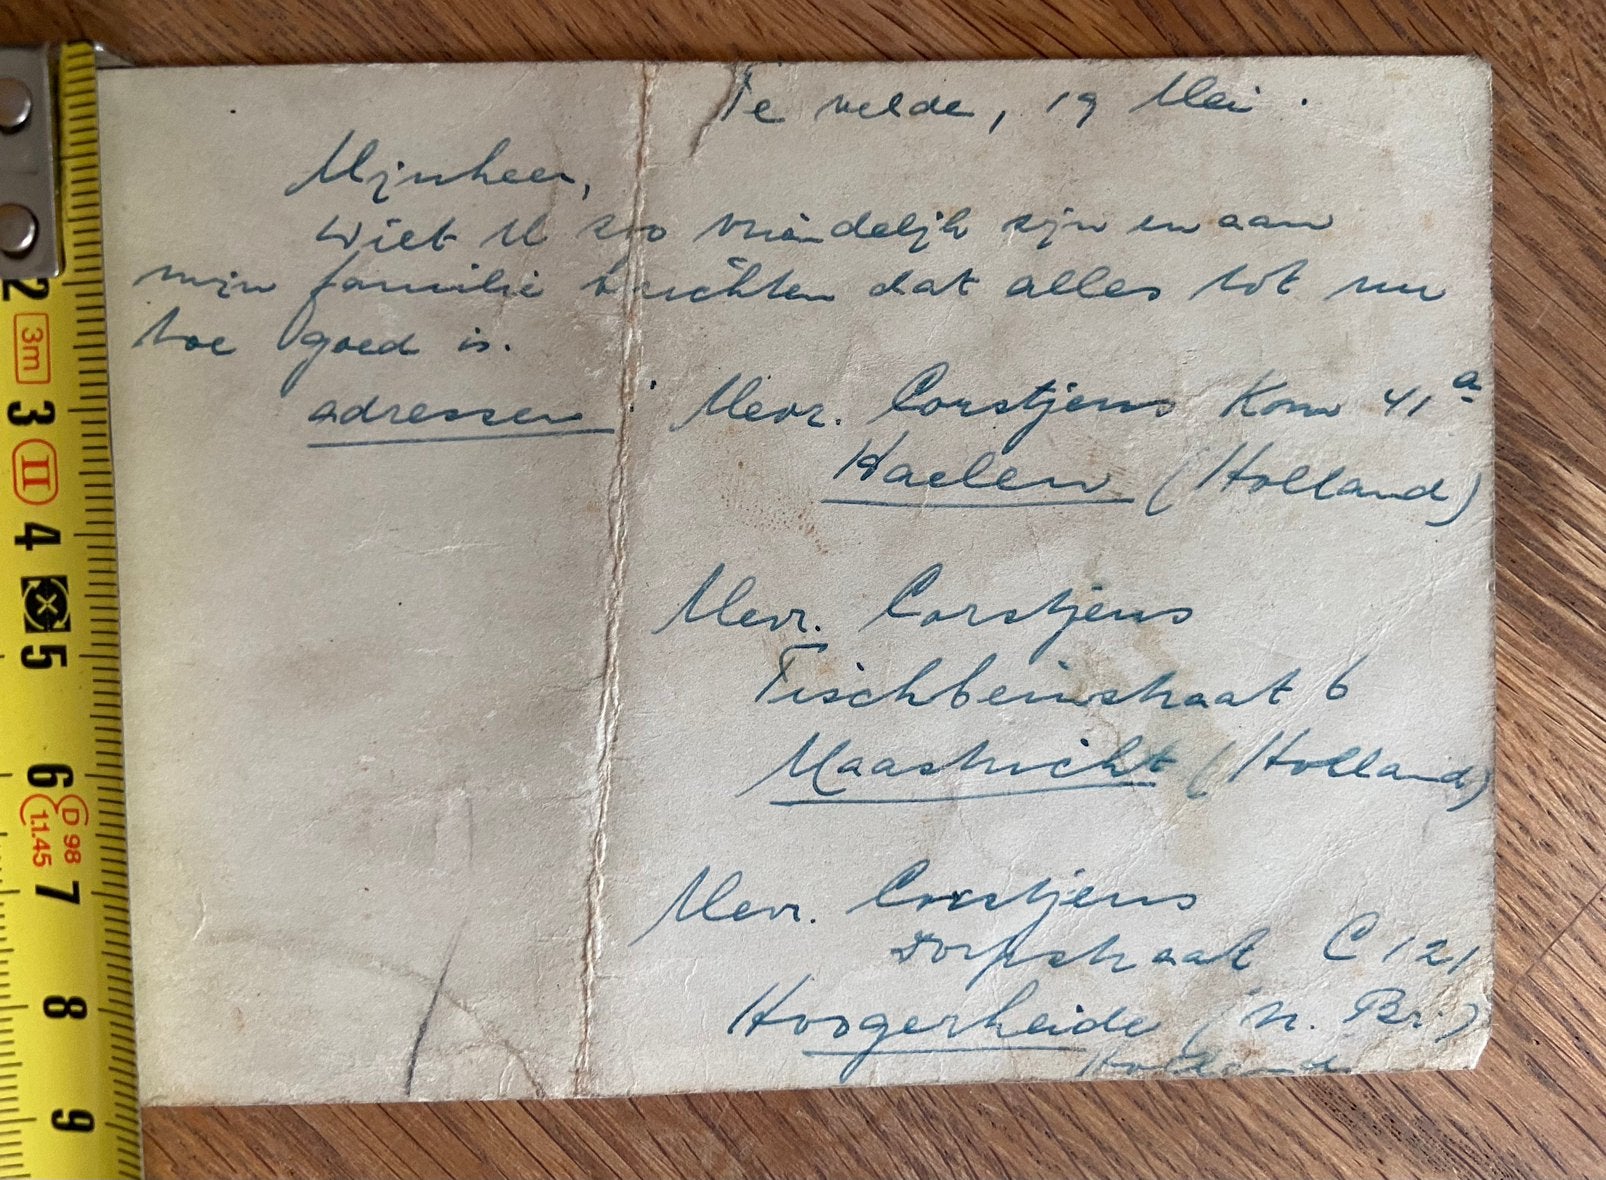 Te velde, 19 Mei.
Mijnheer,
Wilt U zoo vriendelijk zijn en aan
mijn familie berichten dat alles tot nu
toe goed is.
adressen: Mevr. Corstjens Kom 41a
Haelen (Holland)
Mevr. Corstjens
Tischbeinstraat 6
Maastricht (Holland)
Mevr. Corstjens
Dorpstraat C 121
Hoogerheide (N. Br.)
Holland
2
3m
3
II
4
5
6
D 98
11.45
7
8
9